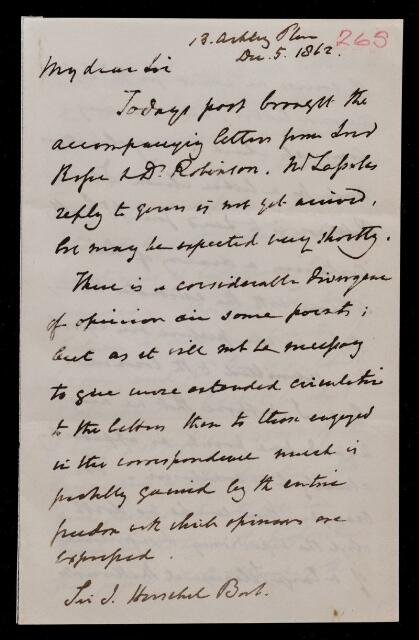 13. Ashley Place 265
Dec. 5. 1862.
My dear Sir
Todays post brought the
accompanying letters from Lord
Rosse & Dr. Robinson. Mr Lassells
reply to yours is not yet arrived,
but may be expected very shortly.
There is a considerable divergence
of opinion on some points;
but as it will not be necessary
to give more extended circulation
to the letters than to those engaged
in the correspondence much is
probably gained by the entire
freedom with which opinions are
expressed.
Sir J. Herschel Bart.